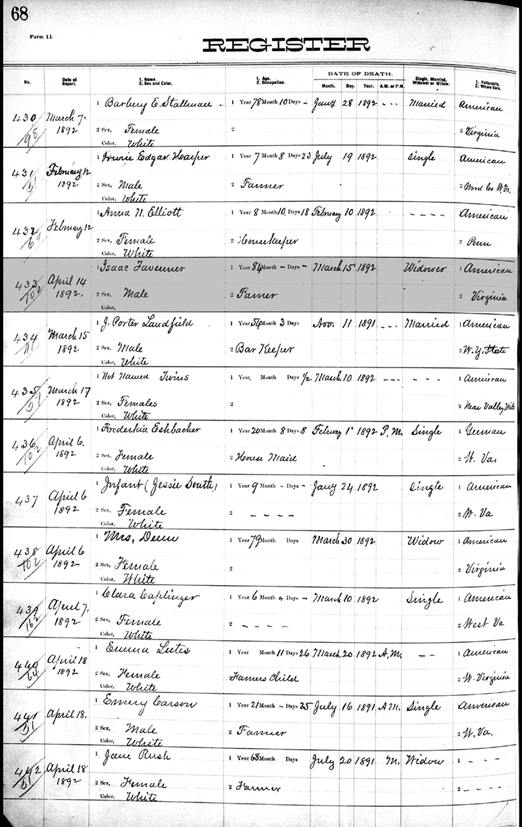 68
Form 11.
REGISTER
DATE OF DEATH.
No. Date of Report. 1. Name. 2. Sex and Color. 1. Age. 2. Occupation. Month. Day. Year. A.M. or P.M. Single, Married, Widower or Widow. 1. Nationality. 2. Where Born.
430 March 7 1892 1 Barbery E. Stallman 1 Year 78 Month 10 Days - Jany 28 1892 --- Married American
98 2 Sex, Female 2 2 Virginia
Color, White
431 February 12 1892 1 Edgar Harper 1 Year 7 Month 8 Days 23 July 19 1892 Single American
2 Sex, Male 2 Farmer 2 Wood Co W. Va.
Color, White
432 February 12 1 Anna N. Elliott 1 Year 8 Month 10 Days 18 February 10 1892 ---- American
6 2 Sex, Female 2 Housekeeper 2 Penn
Color, White
433 April 14 1892. 1 Isaac Tavenner 1 Year 84 Month - Days - March 15 1892 Widower 1 American
102 2 Sex, Male 2 Farmer 2 Virginia
Color,
434 March 15 1892 1 J. Porter Landfield 1 Year 51 Month 3 Days Nov. 11 1891 --- Married 1 American
2 Sex, Male 2 Bar Keeper 2 N.Y. State
Color, White
435 March 17 1892 1 Not Named Twins 1 Year, Month Days 1/2 March 10 1892 --- ---- 1 American
2 Sex, Females 2 2 Near Valley
Color, White
436 April 6. 1892 1 Frederkia Eshbacher 1 Year 20 Month 8 Days 8 Febuary 1st 1892 P.M. Single 1 German
102 2 Sex, Female 2 House Maid 2 W. Va.
Color, White
437 April 6 1892 1 Infant (Jessie 1 Year 9 Month - Days - Jany 24 1892 Single 1 American
2 Sex, Female 2 ---- 2 W. Va
Color, White
438 April 6 1892 1 Mrs. 1 Year 79 Month Days March 30 1892 Widow 1 American
102 2 Sex, Female 2 2 Virginia
Color, White
439 April 7. 1892 1 Clara Caplinger 1 Year 6 Month 4 Days - March 10 1892 Single 1 American
162 2 Sex, Female 2 ---- 2 West Va
Color, White
440 April 18 1892 1 Emma Lutes 1 Year Month 11 Days 26 March 20 1892 A.M. -- 1 American
64 2 Sex, Female Farmers Child 2 W. Virginia
Color, White
441 April 18. 1 Emery Carson 1 Year 21 Month - Days 25 July 16 1891 A.M. Single American
2 Sex, Male 2 Farmer 2 W. Va.
Color, White
442 April 18 1892 1 Jane Rush 1 Year 63 Month Days July 20 1891 M. Widow 1 ----
2 Sex, Female 2 Farmer 2 ----
Color, White